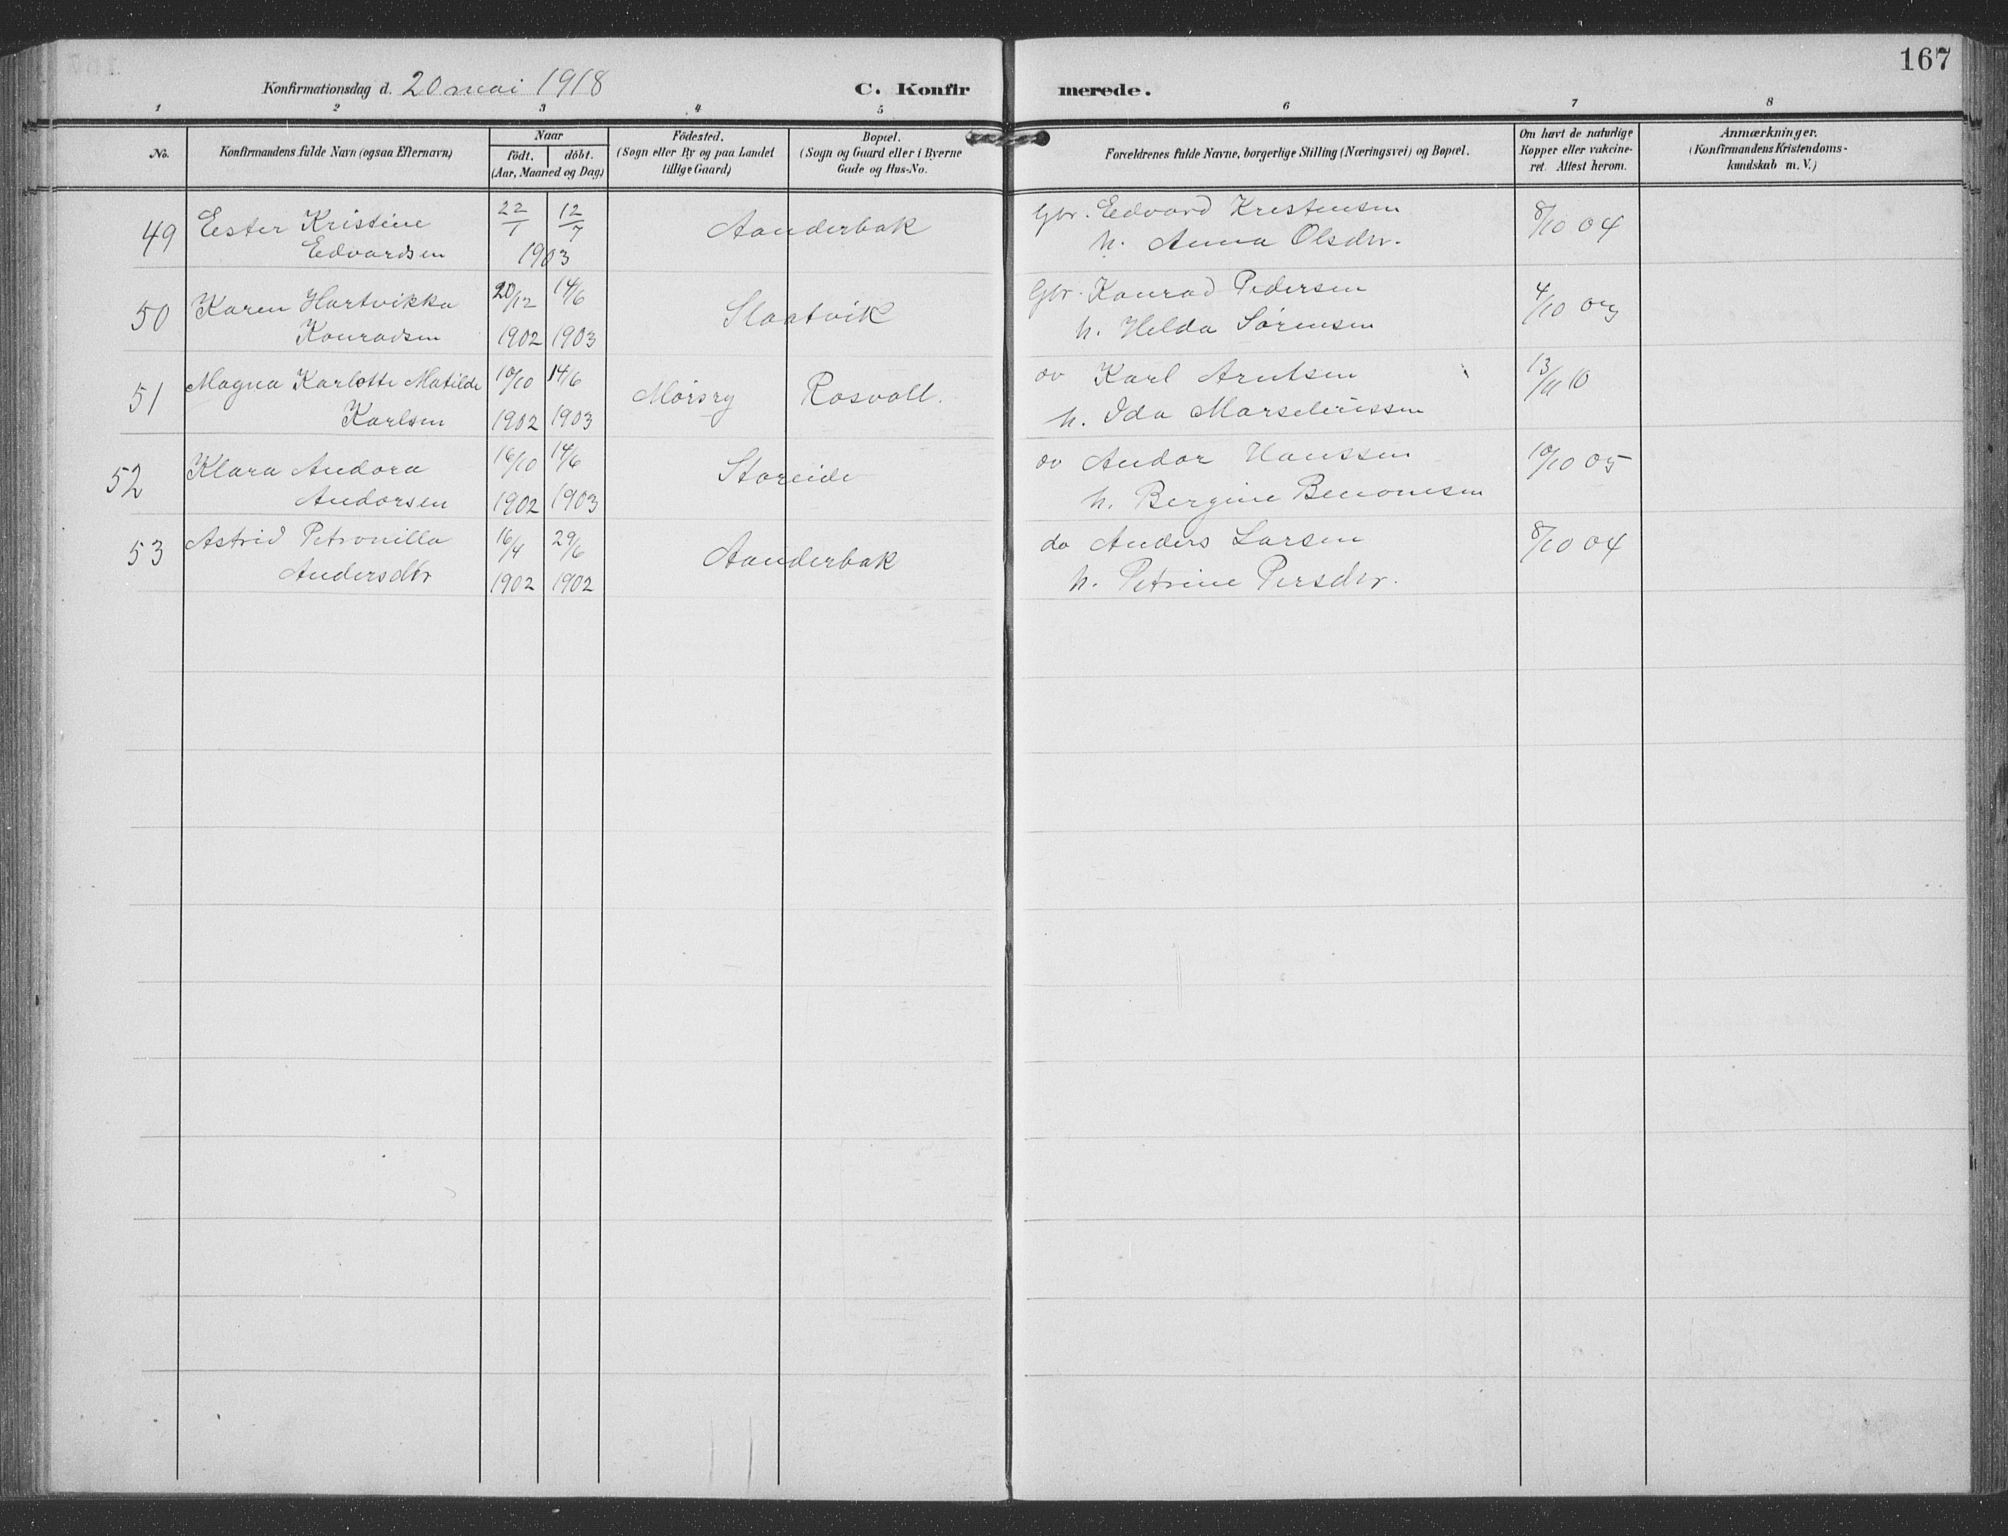 167
Konfirmationsdag d. 20 mai 1918 C. Konfir merede.
1 2 3 4 5 6 7 8
No.
Konfirmandens fulde Navn (ogsaa Efternavn)
Naar
født. døbt.
(Aar, Maaned og Dag)
Fødested.
(Sogn eller By og paa Landet
tillige Gaard)
Bopæl.
(Sogn og Gaard eller i Byerne
Gade og Hus-No.
Forældrenes fulde Navne, borgerlige Stilling (Næringsvei) og Bopæl.
Om havt de naturlige
Kopper eller vakcine-
ret. Attest herom.
Anmærkninger.
(Konfirmandens Kristendoms-
kundskab m. V.)
49 Ester Kristine 22/1 12/7 Aanderbak Gbr. Edvard Kristensen 8/10 04
Edvardsen 1903 h. Anna Olsdtr.
50 Karen Hartvikka 20/12 14/6 Slaatvik Gbr. Konrad Pedersen 4/10 03
Konradsen 1902 1903 h. Helda Sørensen
51 Magna Karlotte Matilde 10/10 14/6 Mørsry Rosvoll. av Karl Arntsen 13/11 10
Karlsen 1902 1903 h. Ida Marseliussen
52 Klara Andora 16/10 14/6 Storeide av Andor Hanssen 10/10 05
Andorsen 1902 1903 h. Bergine Benonisen
53 Astrid Petronilla 16/4 29/6 Aanderbak do Anders Larsen 8/10 04
Andersdtr 1902 1902 h. Petrine Persdtr.